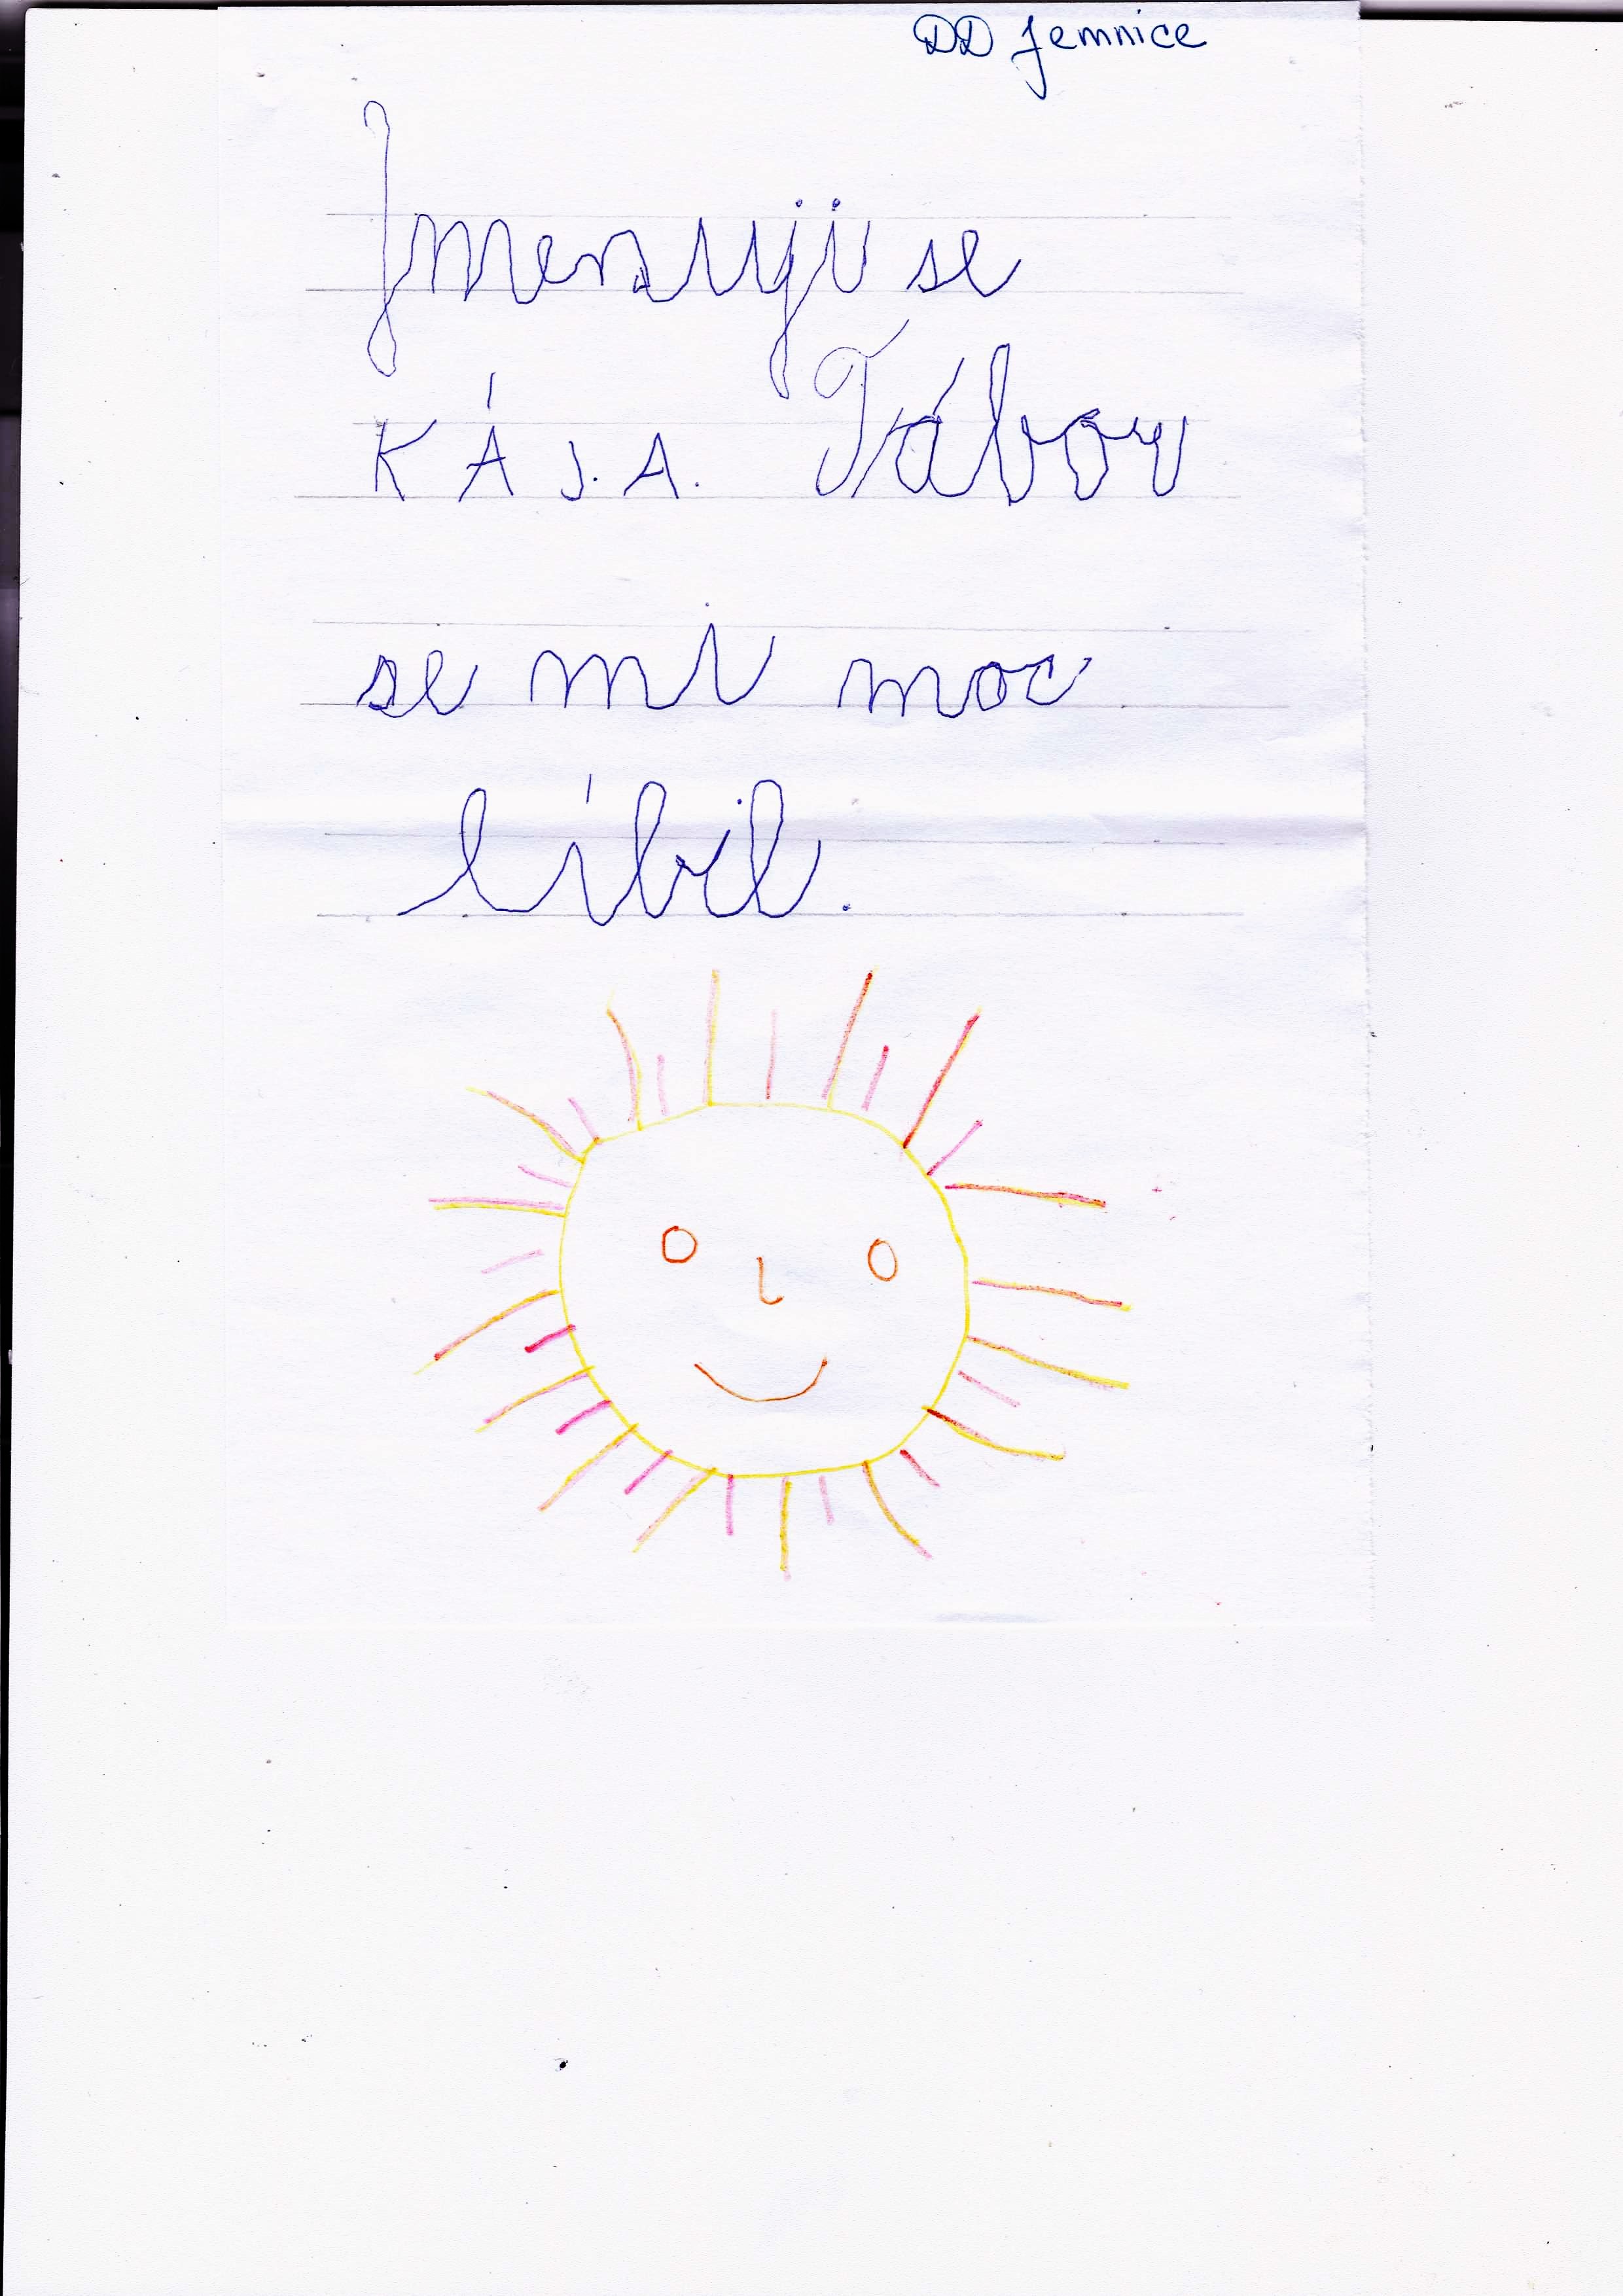 DD Jemnice
Jmenuji se
KÁJ.A. Tábor
se mi moc
líbil.